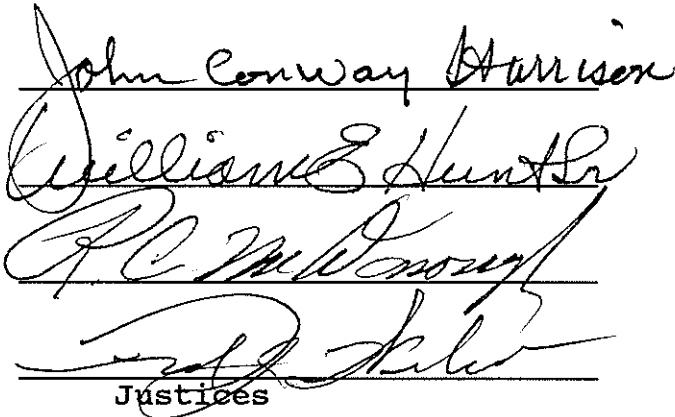 John Conway Harrison
William E Hunt Sr
R. C. McDonough
Justices